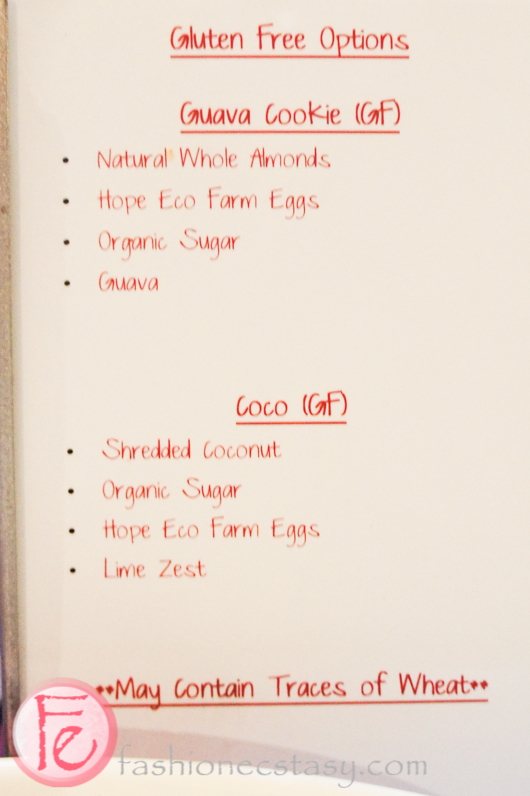 Gluten Free Options
Guava Cookie (GF)
• Natural Whole Almonds
• Hope Eco Farm Eggs
• Organic Sugar
• Guava
Coco (GF)
• Shredded Coconut
• Organic Sugar
• Hope Eco Farm Eggs
• Lime Zest
**May Contain Traces of Wheat**
Fe fashionecstasy.com